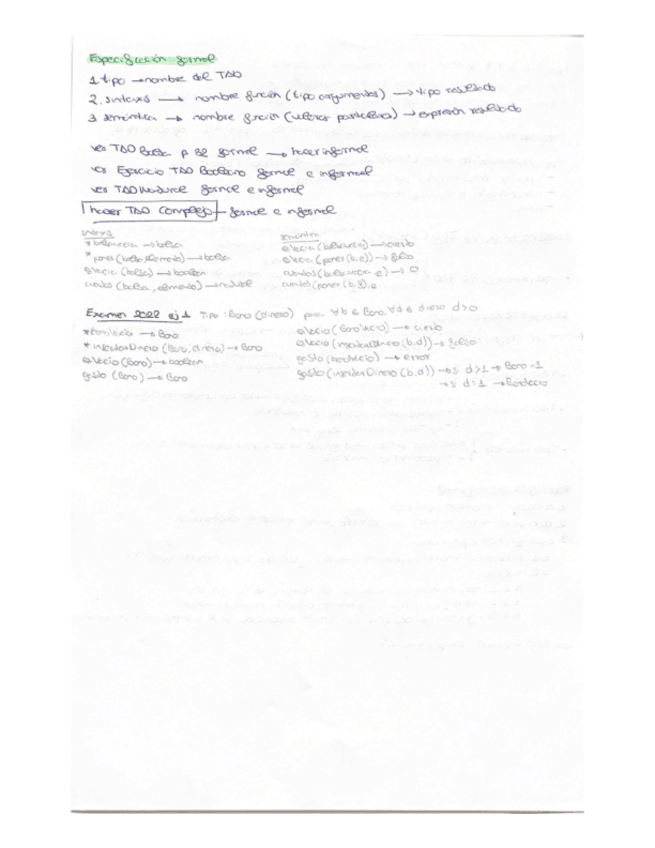 Especificación formal
1. tipo → nombre del TAD
2. sintaxis → nombre función (tipo argumentos) → tipo resultado
3. semántica → nombre función (valores particulares) → expresión resultado
ver TAD Bolsa p 82 formal → hacer informal
ver Ejercicio TAD Booleano formal e informal
ver TAD Natural formal e informal
hacer TAD Complejo - formal e informal
sintaxis
* bolsavacia → bolsa
* poner (bolsa, elemento) → bolsa
esvacia (bolsa) → boolean
cuantos (bolsa, elemento) → natural
semántica
esvacia (bolsavacia) → cierto
esvacia (poner (b,e)) → falso
cuantos (bolsavacia, e) → 0
cuantos (poner (b,f), e
Examen 2022 ej 1 Tipo: Bono (dinero) para ∀b ∈ Bono, ∀d ∈ dinero d>0
* BonoVacio → Bono
* insertarDinero (Bono, dinero) → Bono
esVacio (Bono) → boolean
gasto (Bono) → Bono
esVacio (BonoVacio) → cierto
esVacio (insertarDinero (b,d)) → falso
gasto (BonoVacio) → error
gasto (insertarDinero (b,d)) → si d>1 → Bono -1
→ si d=1 → BonoVacio